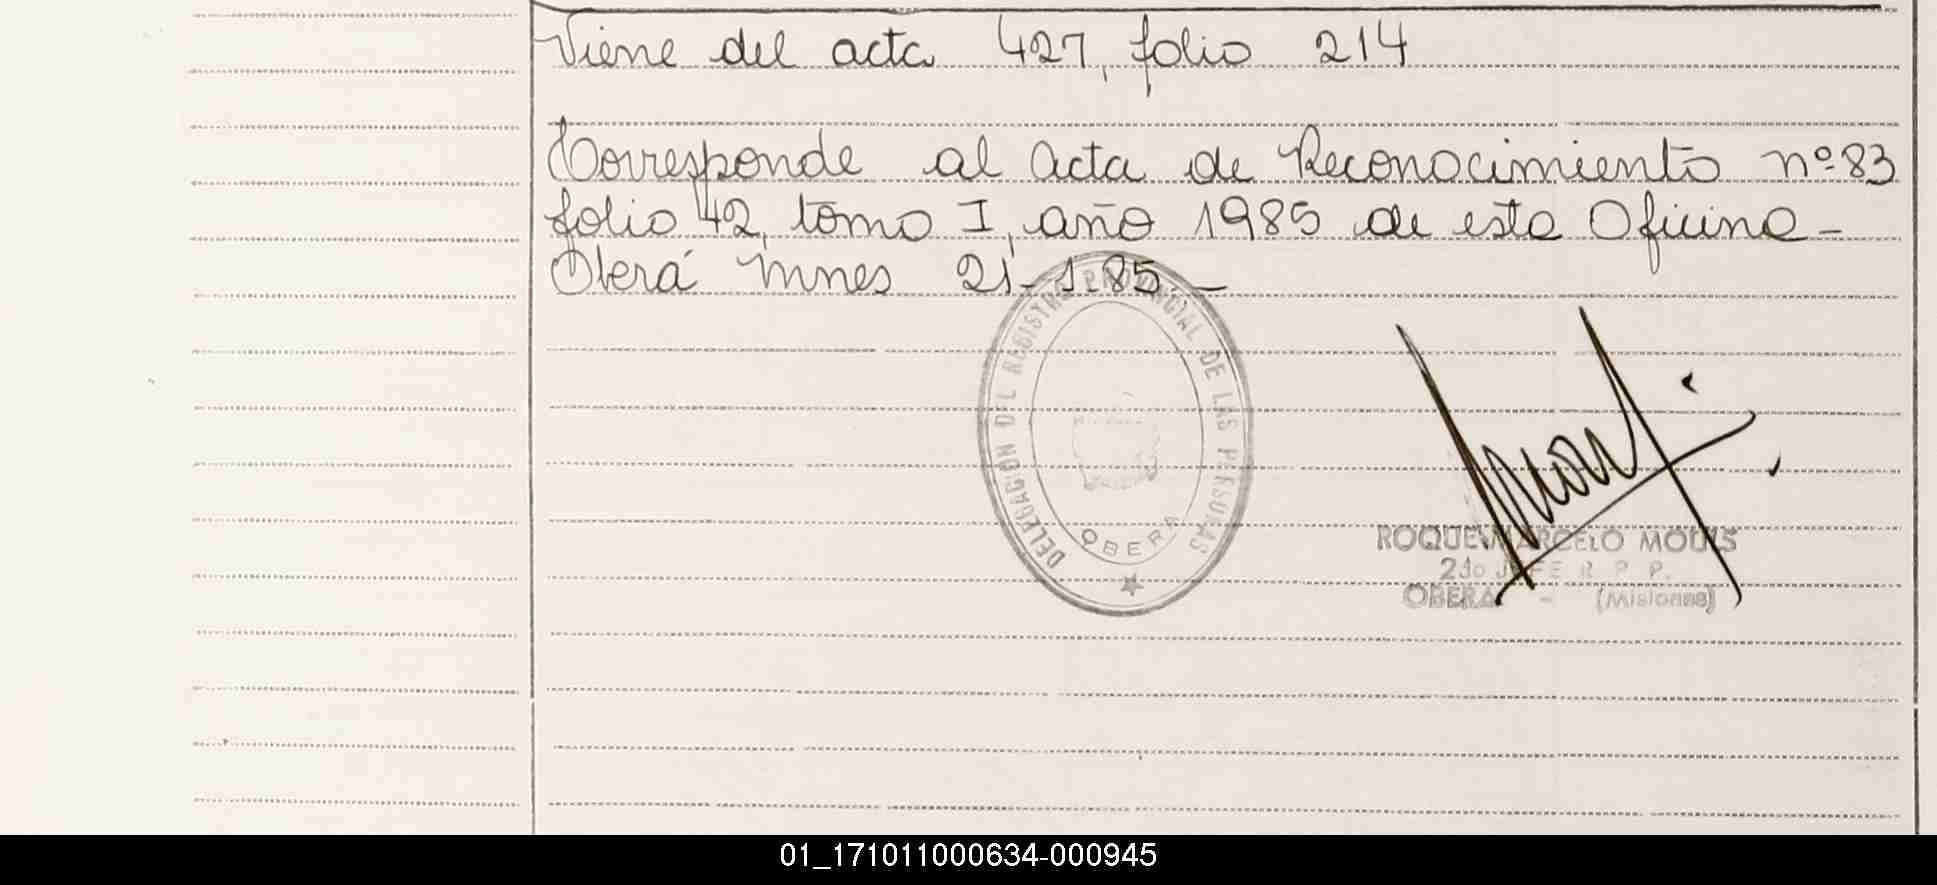 Viene del acta 427, folio 214
Corresponde al acta de Reconocimiento nº 83
folio 42, tomo I, año 1985 de esta Oficina -
Oberá Mnes 21-1-85. -
DELEGACION DEL REGISTRO PROVINCIAL DE LAS PERSONAS
OBERA
ROQUE MARCELO
2do JEFE R. P. P.
OBERA - (Misiones)
01_171011000634-000945